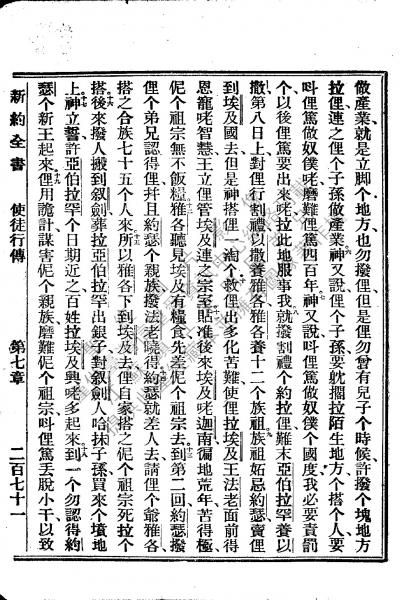 做產業就是立脚个地方也勿撥俚但是俚勿曾有兒子个時候許撥个塊地方
拉俚連之俚个子孫做產業神又說俚个子孫要躭擱拉陌生地方个搭个人要
呌俚篤做奴僕咾磨難俚篤四百年神又說呌俚篤做奴僕个國度我必要責罰
个以後俚篤要出來咾拉此地服事我就撥割禮个約拉俚難末亞伯拉罕養以
撒第八日上對俚行割禮以撒養雅各雅各養十二个族祖族祖妬忌約瑟賣俚
到埃及國去但是神搭俚一淘个救俚出多化苦難使俚拉埃及王法老面前得
恩寵咾智慧王立俚管埃及連之宗室貼准後來埃及咾迦南徧地荒年苦得極
伲个祖宗無不飯糧雅各聽見埃及有糧食先差伲个祖宗去到第二回約瑟撥
俚个弟兄認得俚幷且約瑟个親族撥法老曉得約瑟就差人去請俚个爺雅各
搭之合族七十五个人來所以雅各下到埃及去俚自家搭之伲个祖宗死拉个
搭後來撥人搬到叙劍葬拉亞伯拉罕出銀子對叙劍人哈抹子孫買來个墳地
上神立誓許亞伯拉罕个日期近之百姓拉埃及興咾多起來到一个勿認得約
瑟个新王起來俚用詭計謀害伲个親族磨難伲个祖宗呌俚篤丟脫小干以致
新約全書 使徒行傳 第七章 二百七十一